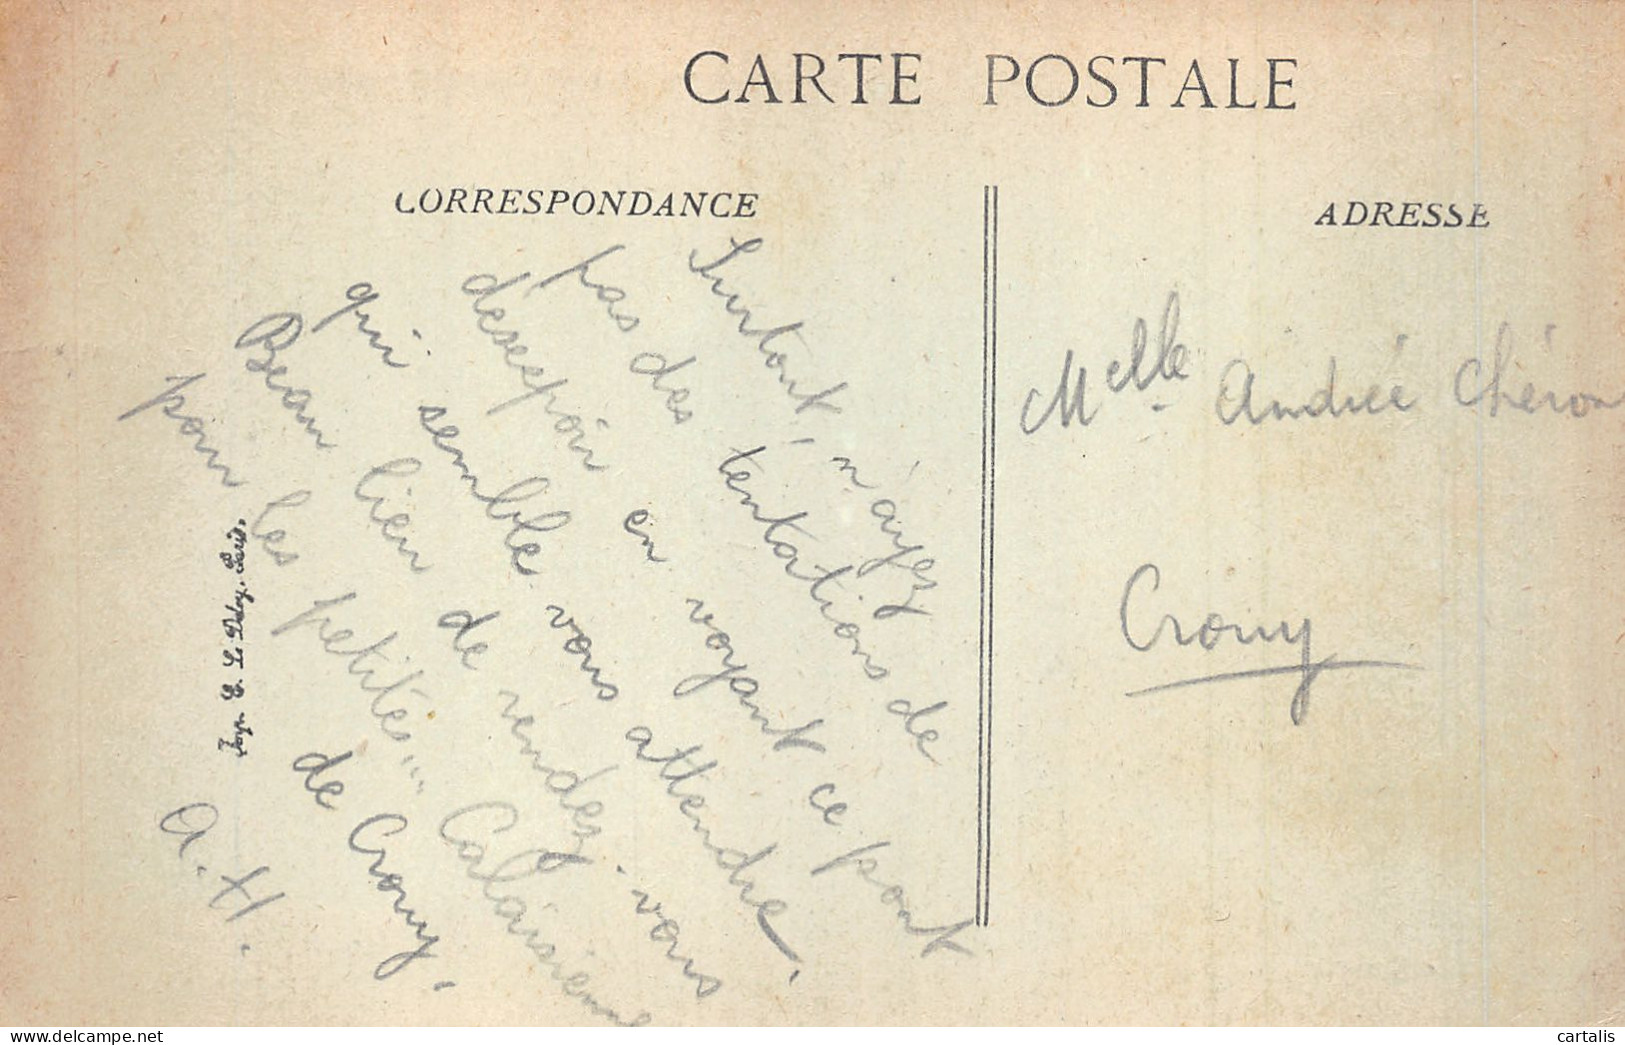 CARTE POSTALE
CORRESPONDANCE
ADRESSE
Surtout, n'ayez
pas des tentations de
desespoir en voyant ce pont
qui semble vous attendre.
Beau lieu de rendez-vous
pour les petites... Calaisienne
de Crouy.
A. H.
Melle Andrée Chéron
Crouy
Imp. E. Le Deley, Paris.
cartalis